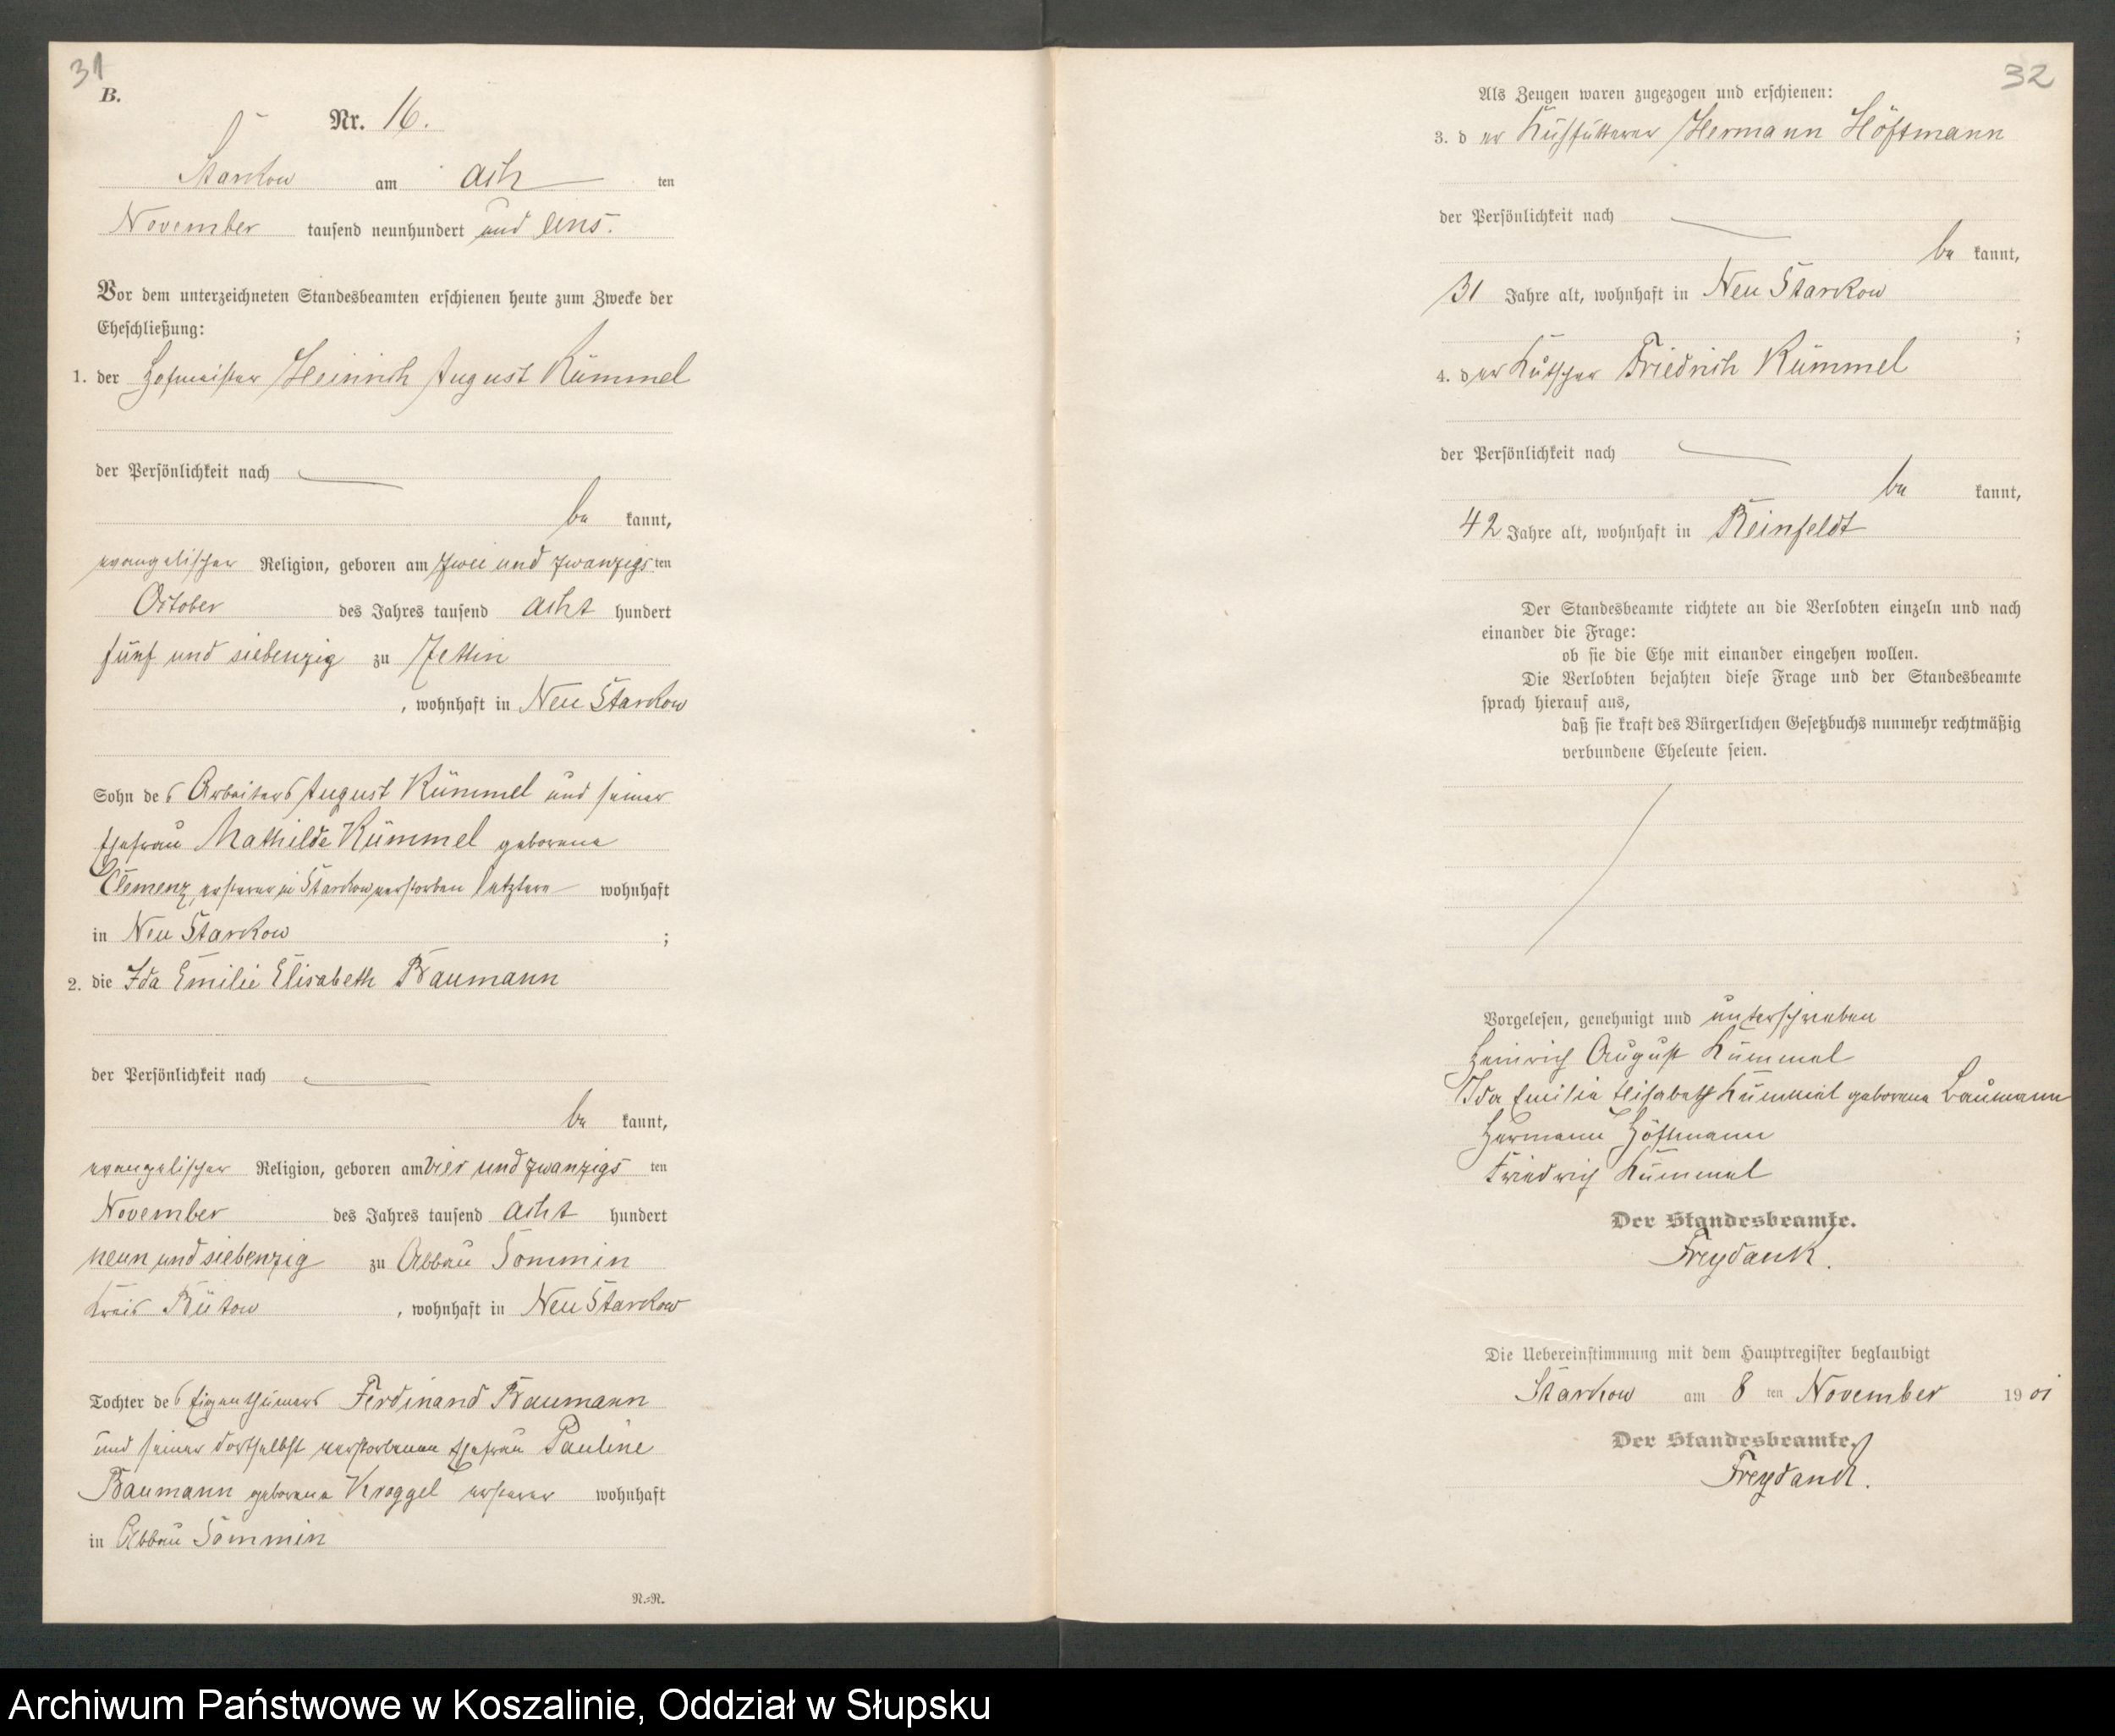 31
B.
Nr. 16.
Starkow am acht ten
November tausend neunhundert und eins.
Vor dem unterzeichneten Standesbeamten erschienen heute zum Zwecke der
Eheschließung:
1. der Hofmeister Heinrich August Kümmel
der Persönlichkeit nach
be kannt,
evangelischer Religion, geboren am zwei und zwanzigs ten
October des Jahres tausend acht hundert
fünf und siebenzig zu Zettin
, wohnhaft in Neu Starkow
Sohn des Arbeiters August Kümmel und seiner
Ehefrau Mathilde Kümmel geborene
Clemenz, ersterer in Starkow verstorben letztere wohnhaft
in Neu Starkow ;
2. die Ida Emilie Elisabeth Baumann
der Persönlichkeit nach
be kannt,
evangelischer Religion, geboren am vier und zwanzigs ten
November des Jahres tausend acht hundert
neun und siebenzig zu Abbau Sommin
Kreis Bütow , wohnhaft in Neu Starkow
Tochter des Eigenthümers Ferdinand Baumann
und seiner dortselbst verstorbenen Ehefrau Pauline
Baumann geborene Kroggel ersterer wohnhaft
in Abbau Sommin
N.=N.
32
Als Zeugen waren zugezogen und erschienen:
3. d er Kuhfütterer Hermann Höftmann
der Persönlichkeit nach
be kannt,
31 Jahre alt, wohnhaft in Neu Starkow
;
4. d er Kutscher Friedrich Kümmel
der Persönlichkeit nach
be kannt,
42 Jahre alt, wohnhaft in Reinfeldt
Der Standesbeamte richtete an die Verlobten einzeln und nach
einander die Frage:
ob sie die Ehe mit einander eingehen wollen.
Die Verlobten bejahten diese Frage und der Standesbeamte
sprach hierauf aus,
daß sie kraft des Bürgerlichen Gesetzbuchs nunmehr rechtmäßig
verbundene Eheleute seien.
Vorgelesen, genehmigt und unterschrieben
Heinrich August Kümmel
Ida Emilie Elisabeth Kümmel geborene Baumann
Hermann Höftmann
Friedrich Kümmel
Der Standesbeamte.
Freydank.
Die Uebereinstimmung mit dem Hauptregister beglaubigt
Starkow am 8 ten November 19 01
Der Standesbeamte.
Freydank.
Archiwum Państwowe w Koszalinie, Oddział w Słupsku